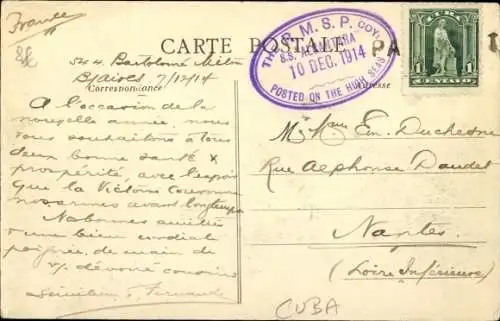 France
CARTE POSTALE
THE R. M. S. P. COY.
S.S. "ALCANTARA"
10 DEC. 1914
POSTED ON THE HIGH SEAS
PA
CUBA
1 CENTAVO 1
524 Bartolomé Mitre
B/aires 7/12/14
Correspondance
Adresse
A l'occasion de la
nouvelle année, nous
vous souhaitons à tous
deux bonne santé &
prospérité, avec l'espoir
que la Victoire couronne
nos armes avant longtemps
amitiés
& une bien cordiale
poignée de main de
v/ dévoués cousins
Fernande
M. & Mme Em. Duchesne
Rue Alphonse Daudet
Nantes
(Loire Inférieure)
CUBA